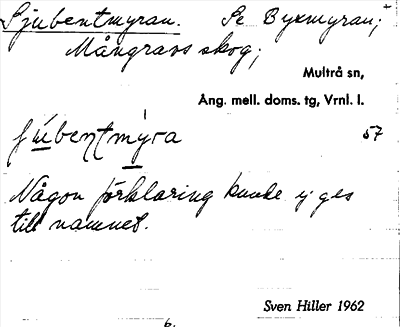 Sjubentmyran. Se Byxmyran;
Mångravs skog;
Multrå sn,
Ång. mell. doms. tg, Vrnl. l.
57
Någon förklaring kunde ej ges
till namnet.
Sven Hiller 1962
6.